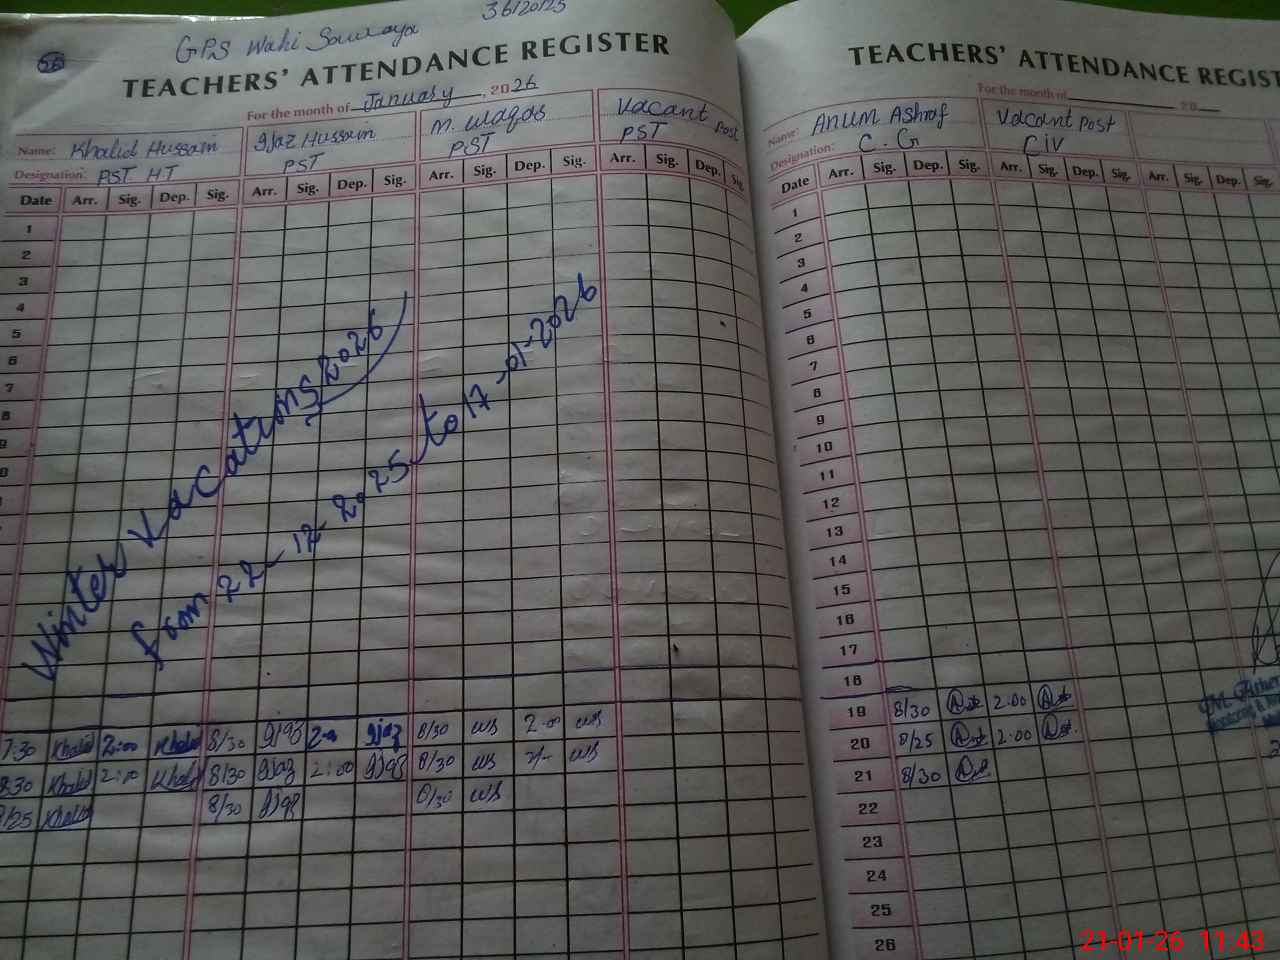 56
GPS Wahi Sawraya
36120125
TEACHERS' ATTENDANCE REGISTER
For the month of January, 2026
Name: Khalid Hussain Ijaz Hussain M. Waqas Vacant Post
Designation: PST HT PST PST PST
Date Arr. Sig. Dep. Sig. Arr. Sig. Dep. Sig. Arr. Sig. Dep. Sig. Arr. Sig. Dep. Sig.
1
2
3
4
5
6
7
8
9
Winter Vacations 2026
from 22-12-2025 to 17-01-2026
7:30 Khalid 2:00 Khalid 8/30 Ijaz 2:00 Ijaz 8/30 ws 2-00 ws
8:30 Khalid 2:00 Khalid 8/30 Ijaz 2:00 Ijaz 8/30 ws 2/- ws
8/25 Khalid 8/30 Ijaz 8/30 ws
TEACHERS' ATTENDANCE REGIST
For the month of 20
Name: Anum Ashraf Vacant Post
Designation: C.G Civ
Date Arr. Sig. Dep. Sig. Arr. Sig. Dep. Sig. Arr. Sig. Dep. Sig.
1
2
3
4
5
6
7
8
9
10
11
12
13
14
15
16
17
18
19 8/30 2:00
20 8/25 2:00
21 8/30
22
23
24
25
26
21-01-26 11:43